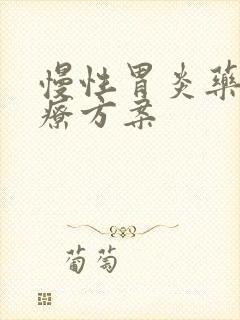 慢性胃炎藥
療方案
葡萄